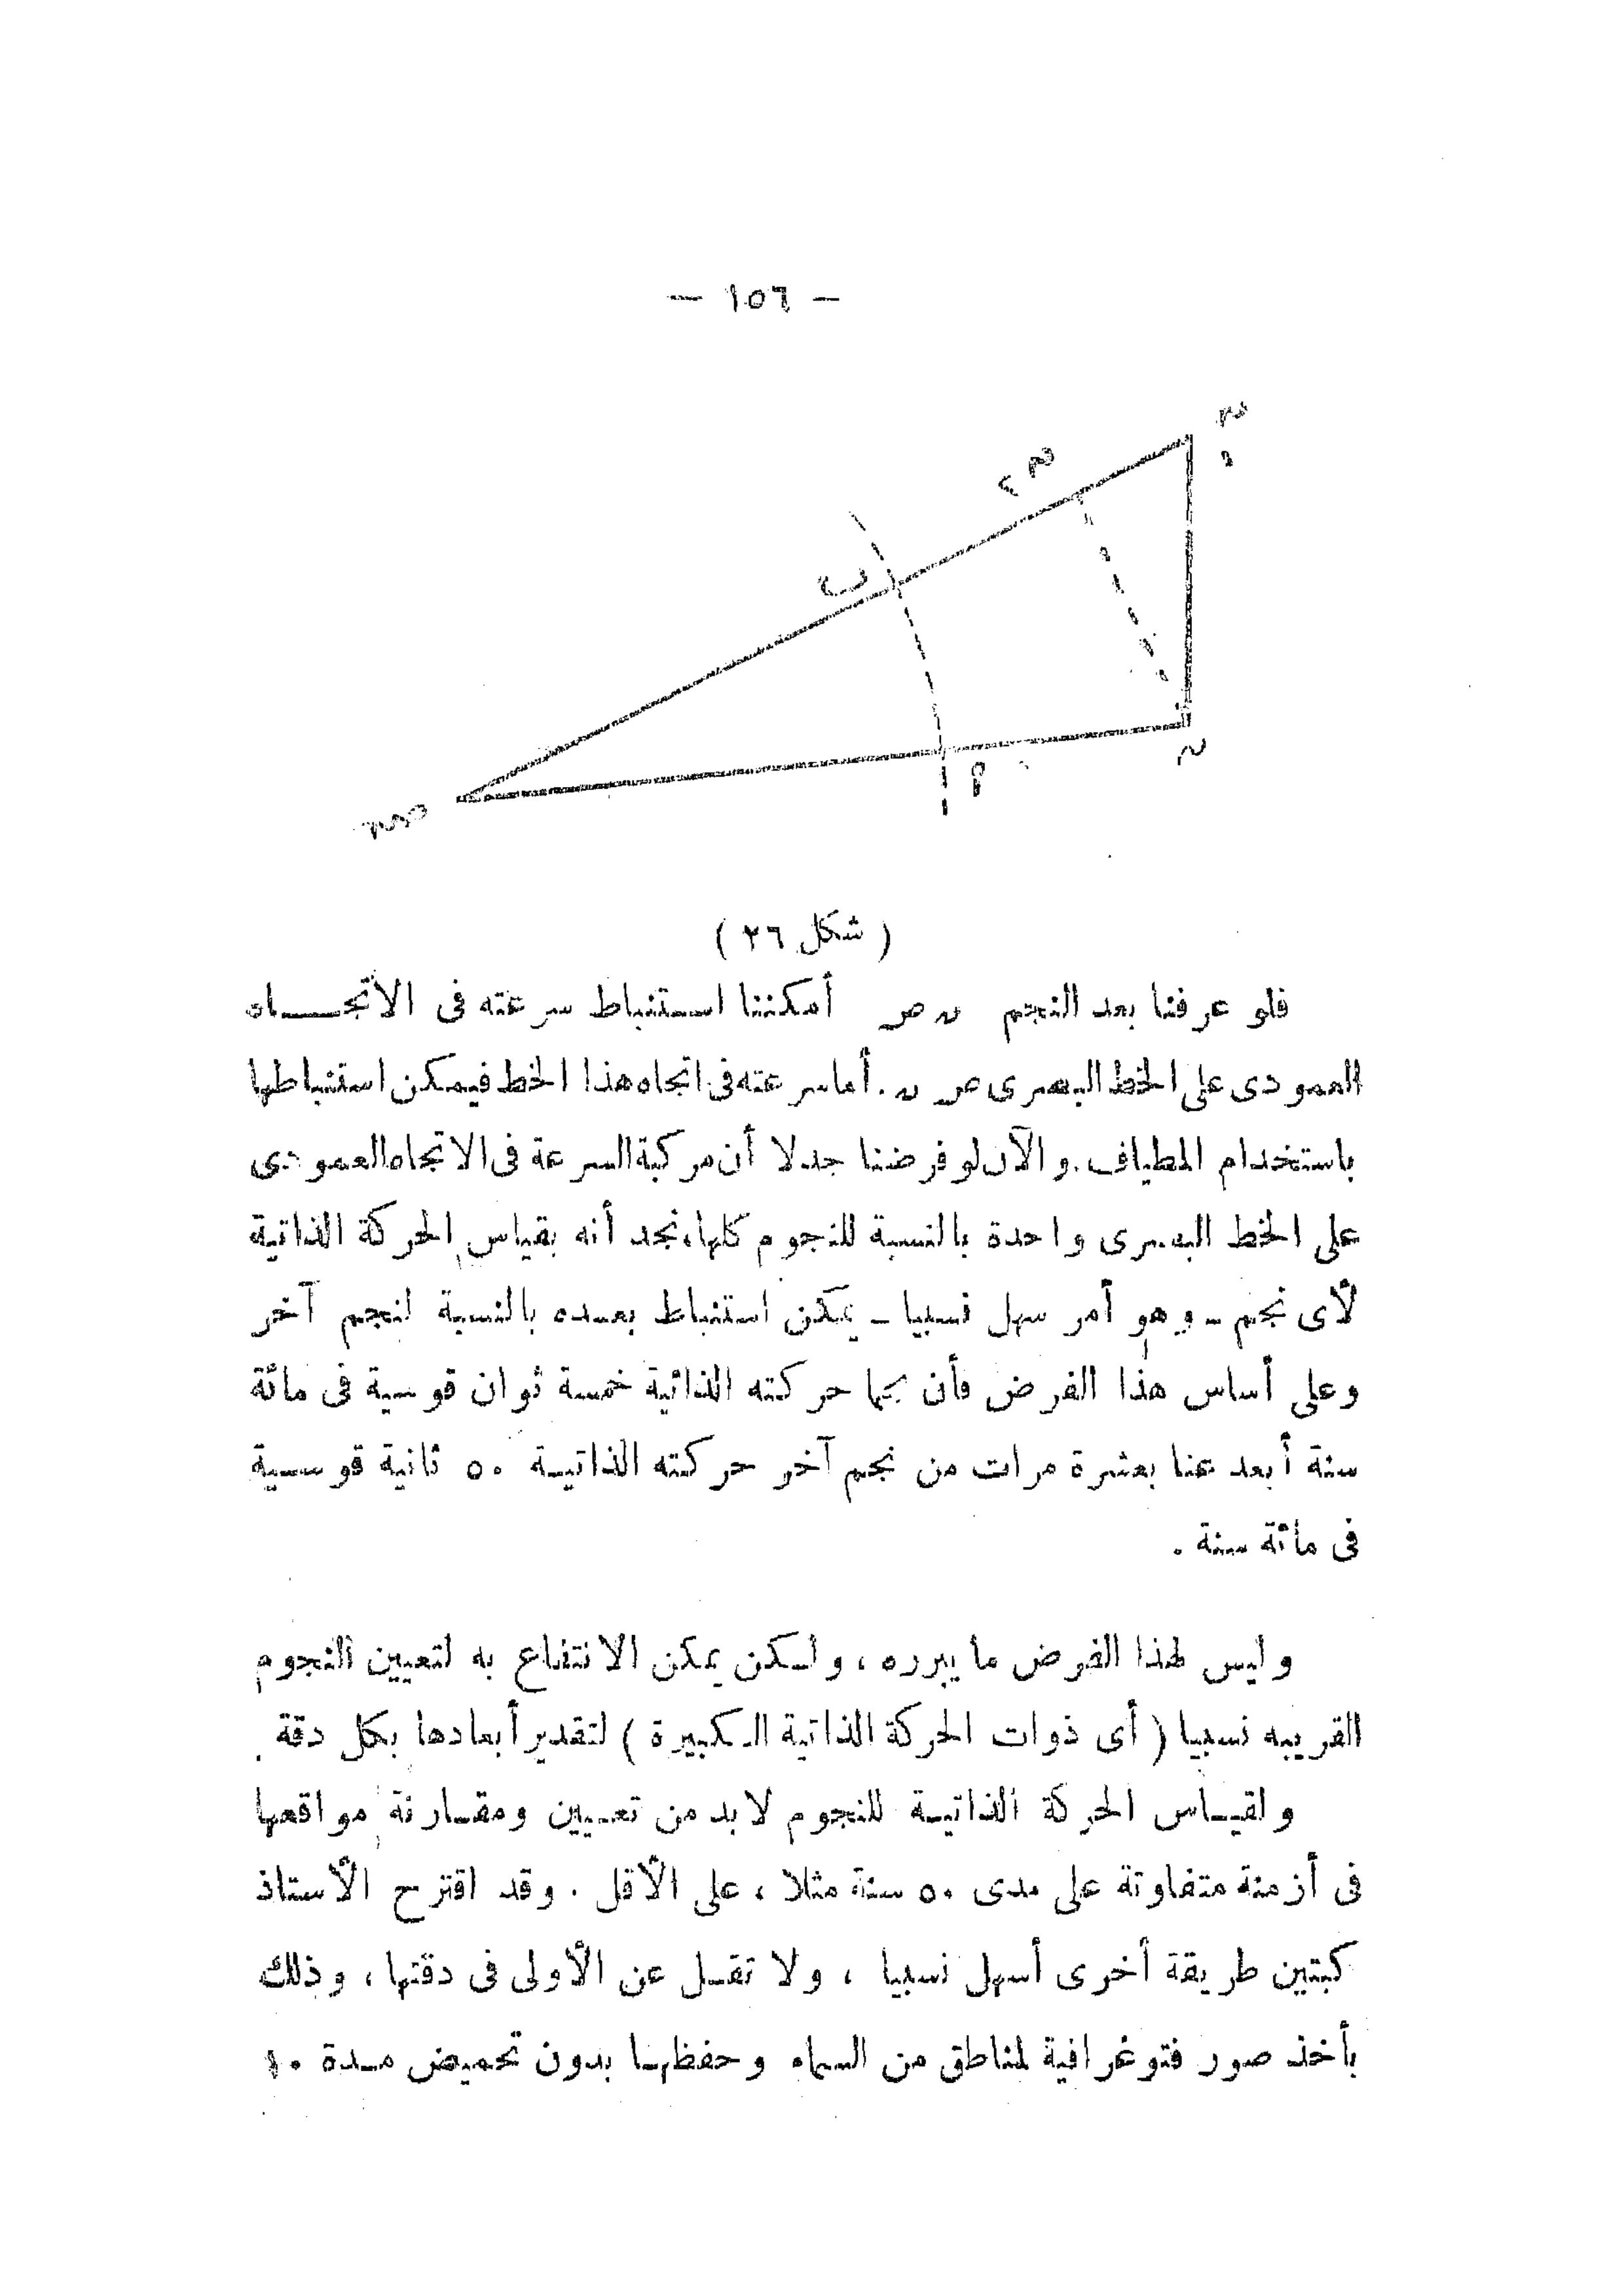 — ١٥٦ —
ب
م
( شكل ٢٦ )
فلو عرفنا بعد النجم ن ص أمكننا استنباط سرعته فى الاتجاه
العمودى على الخط البصرى ص ن . أما سرعته فى اتجاه هذا الخط فيمكن استنباطها
باستخدام المطياف . والآن لو فرضنا جدلا أن مركبة السرعة فى الاتجاه العمودى
على الخط البصرى واحدة بالنسبة للنجوم كلها، نجد أنه بقياس الحركة الذاتية
لأى نجم ـ وهو أمر سهل نسبيا ـ يمكن استنباط بعده بالنسبة لنجم آخر
وعلى أساس هذا الفرض فأن نجما حركته الذاتية خمسة ثوان قوسية فى مائة
سنة أبعد عنا بعشرة مرات من نجم آخر حركته الذاتية ٥٠ ثانية قوسية
فى مائة سنة .
وليس لهذا الفرض ما يبرره ، ولكن يمكن الانتفاع به لتعيين النجوم
القريبه نسبيا ( أى ذوات الحركة الذاتية الكبيرة ) لتقدير أبعادها بكل دقة .
ولقياس الحركة الذاتية للنجوم لابد من تعيين ومقارنة مواقعها
فى أزمنة متفاوتة على مدى ٥٠ سنة مثلا ، على الأقل . وقد اقترح الأستاذ
كبتين طريقة أخرى أسهل نسبيا ، ولا تقل عن الأولى فى دقتها ، وذلك
بأخذ صور فتوغرافية لمناطق من السماء وحفظها بدون تحميض مدة ١٠